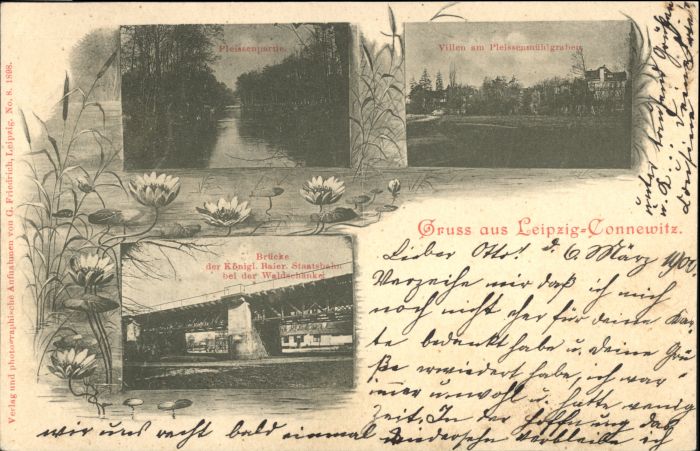 Pleissenpartie.
Villen am Pleissenmühlgraben.
Brücke
der Königl. Baier. Staatsbahn
bei der Waldschänke.
Gruss aus Leipzig-Connewitz.
Verlag und photographische Aufnahmen von G. Friedrich, Leipzig. No. 8. 1898.
Lieber Otto! d. 6 März 1900
Verzeihe mir daß ich mich
noch nicht eher für deine Kar-
te bedankt habe u. deine Grü-
ße erwiedert habe, ich war
immer unwohl u. hatte wenig
Zeit. In der Hoffnung daß
wir uns recht bald einmal wiedersehn verbleibe ich
unter tausend Grüßen
u. K...